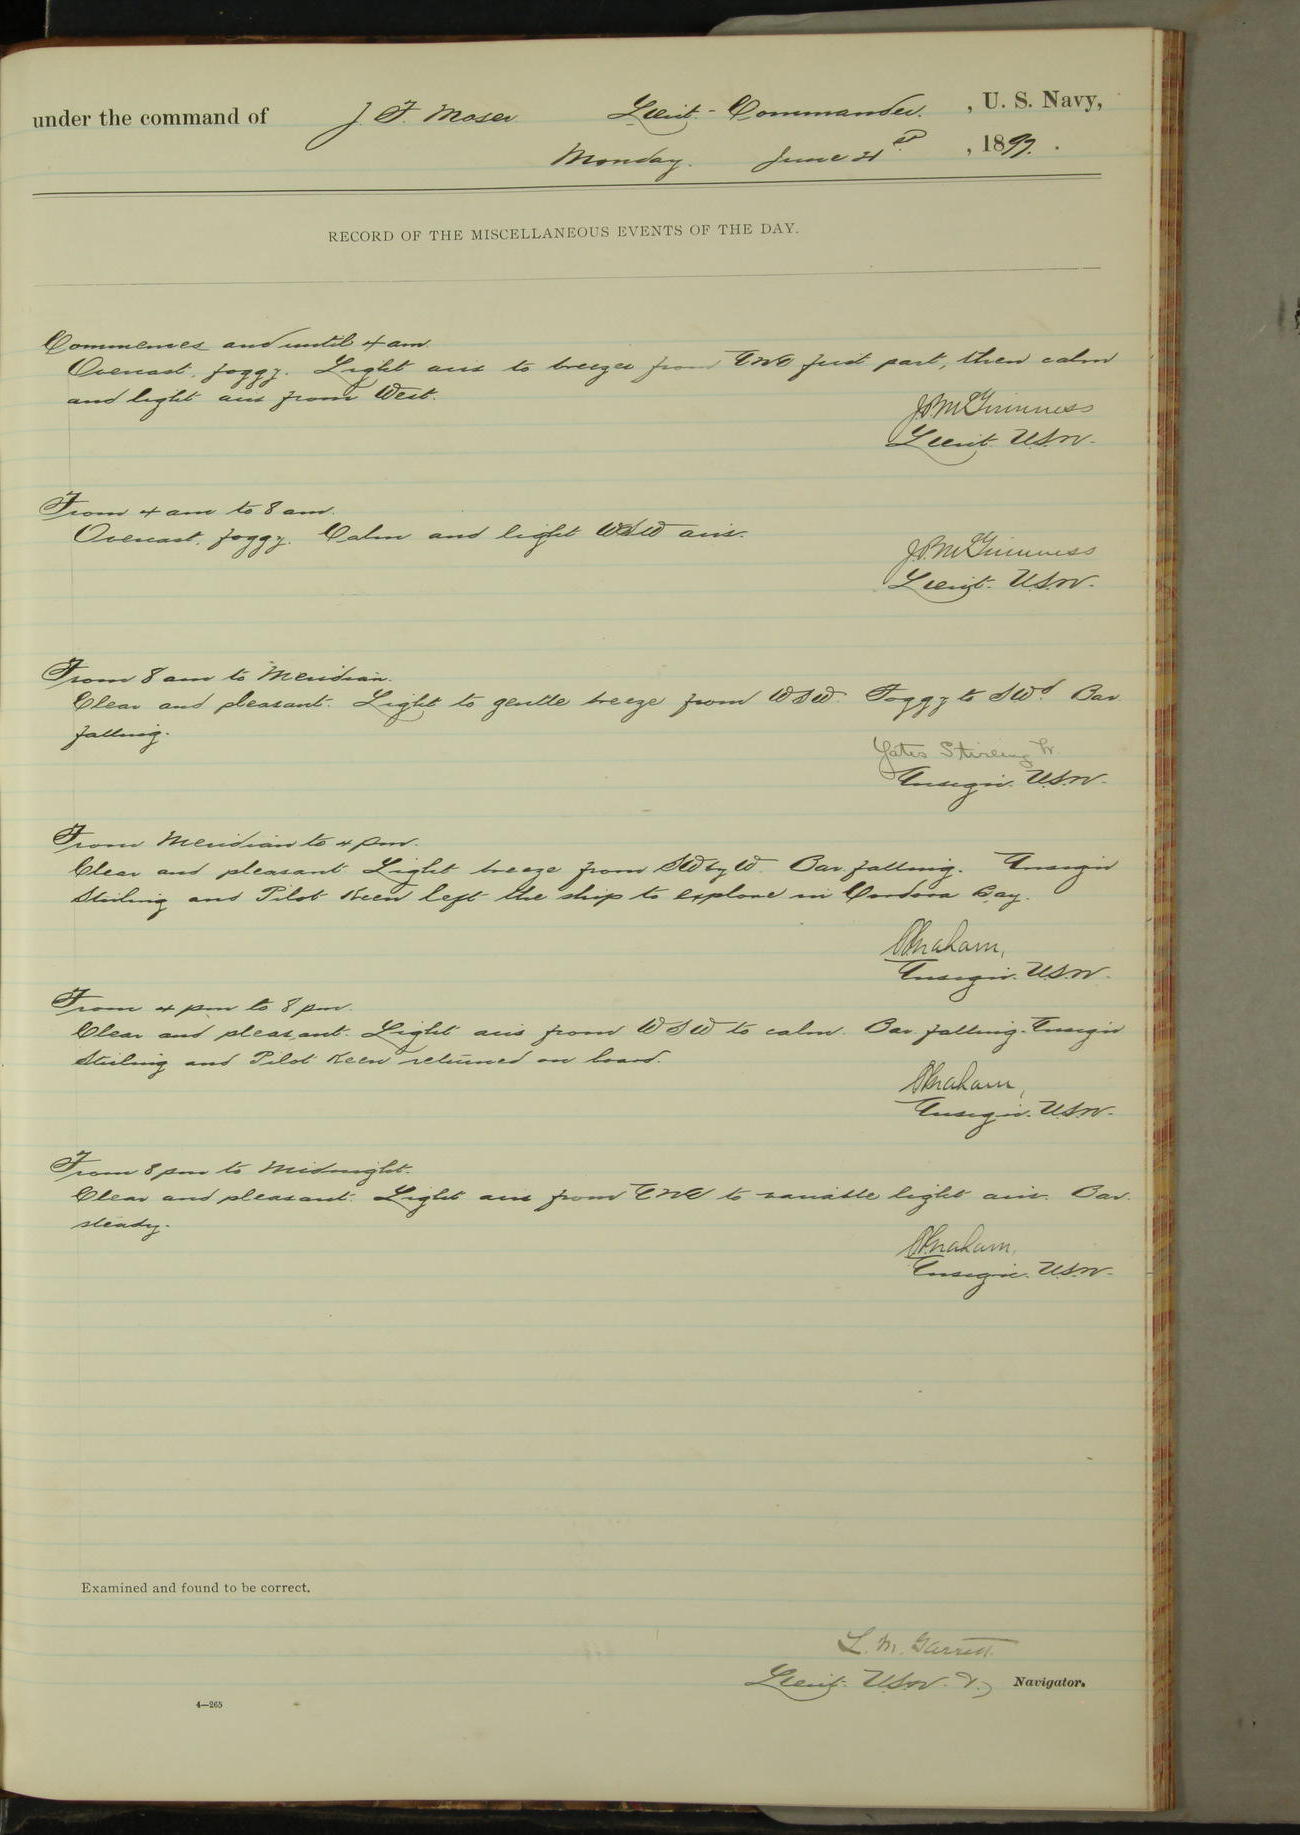 under the command of J. F. Moser Lieut-Commander. , U. S. Navy,
Monday. June 21st , 1897.
RECORD OF THE MISCELLANEOUS EVENTS OF THE DAY.
Commences and until 4 am.
Overcast, foggy. Light airs to breezes from ENE first part, then calm
and light airs from West.
J.P. McGuinness
Lieut. U.S.N.
From 4 am to 8 am.
Overcast, foggy. Calm and light WSW airs.
J.P. McGuinness
Lieut. U.S.N.
From 8 am to Meridian.
Clear and pleasant. Light to gentle breeze from WSW. Foggy to SWd. Bar.
falling.
Yates Stirling Jr.
Ensign. U.S.N.
From Meridian to 4 pm.
Clear and pleasant. Light breeze from SW by W. Bar falling. Ensign
Stirling and Pilot Keen left the ship to explore in Cordova Bay.
Graham,
Ensign. U.S.N.
From 4 pm to 8 pm.
Clear and pleasant. Light airs from WSW to calm. Bar. falling. Ensign
Stirling and Pilot Keen returned on board.
Graham,
Ensign. U.S.N.
From 8 pm to Midnight.
Clear and pleasant. Light airs from ENE to variable light airs. Bar.
steady.
Graham,
Ensign. U.S.N.
Examined and found to be correct.
L. M. Garrett.
Lieut. U.S.N. Navigator.
4—265